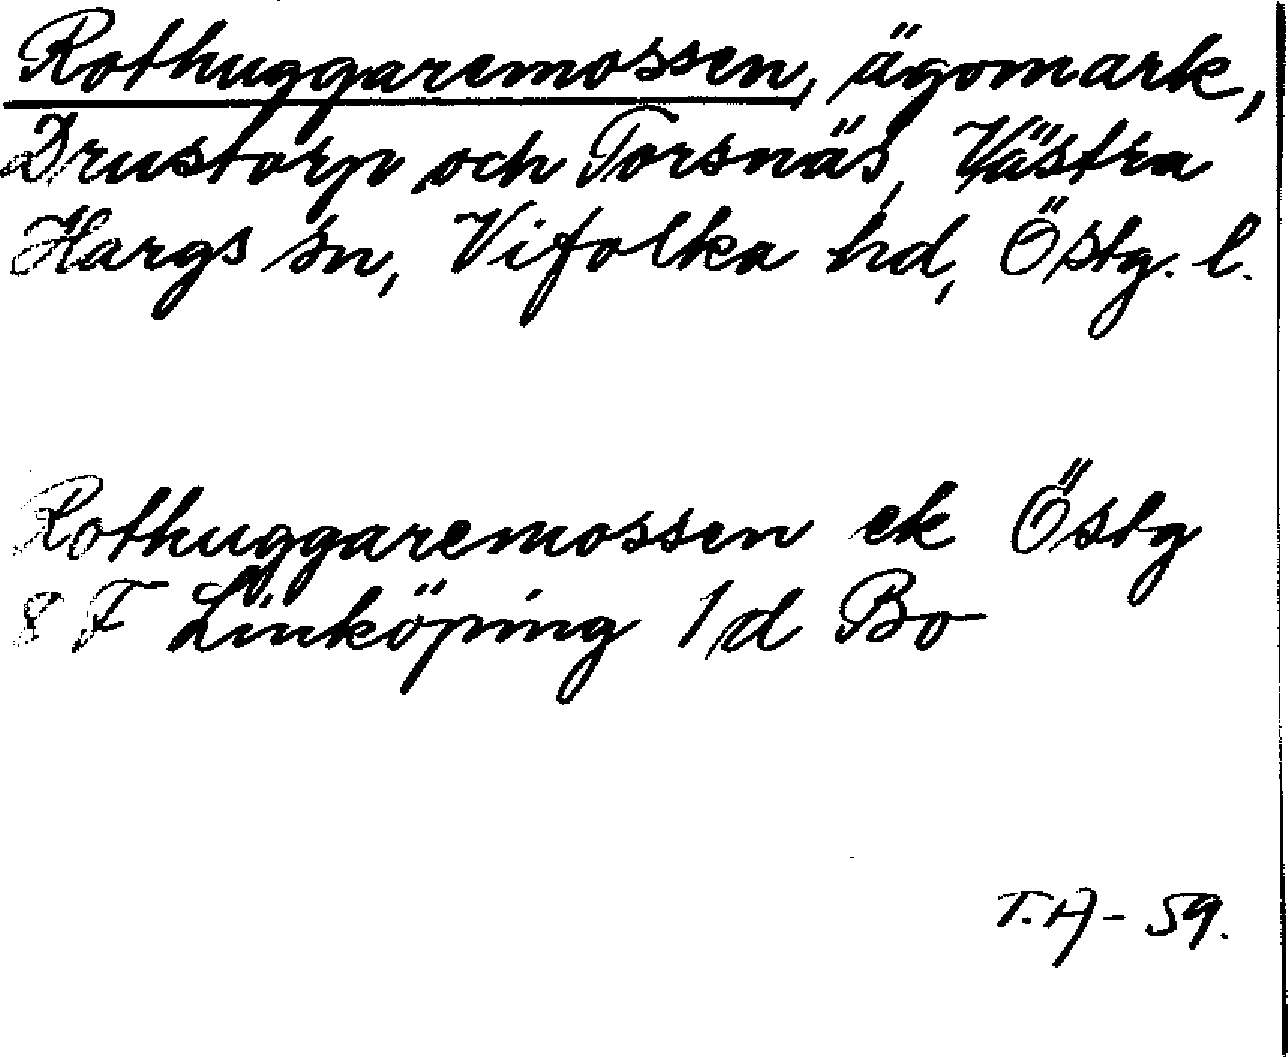 Rothuggaremossen, ägomark,
Drustorp och Torsnäs, Västra
Hargs sn, Vifolka hd, Östg. l.
Rothuggaremossen ek Östg
8 F Linköping 1d Bo
T.A - 59.